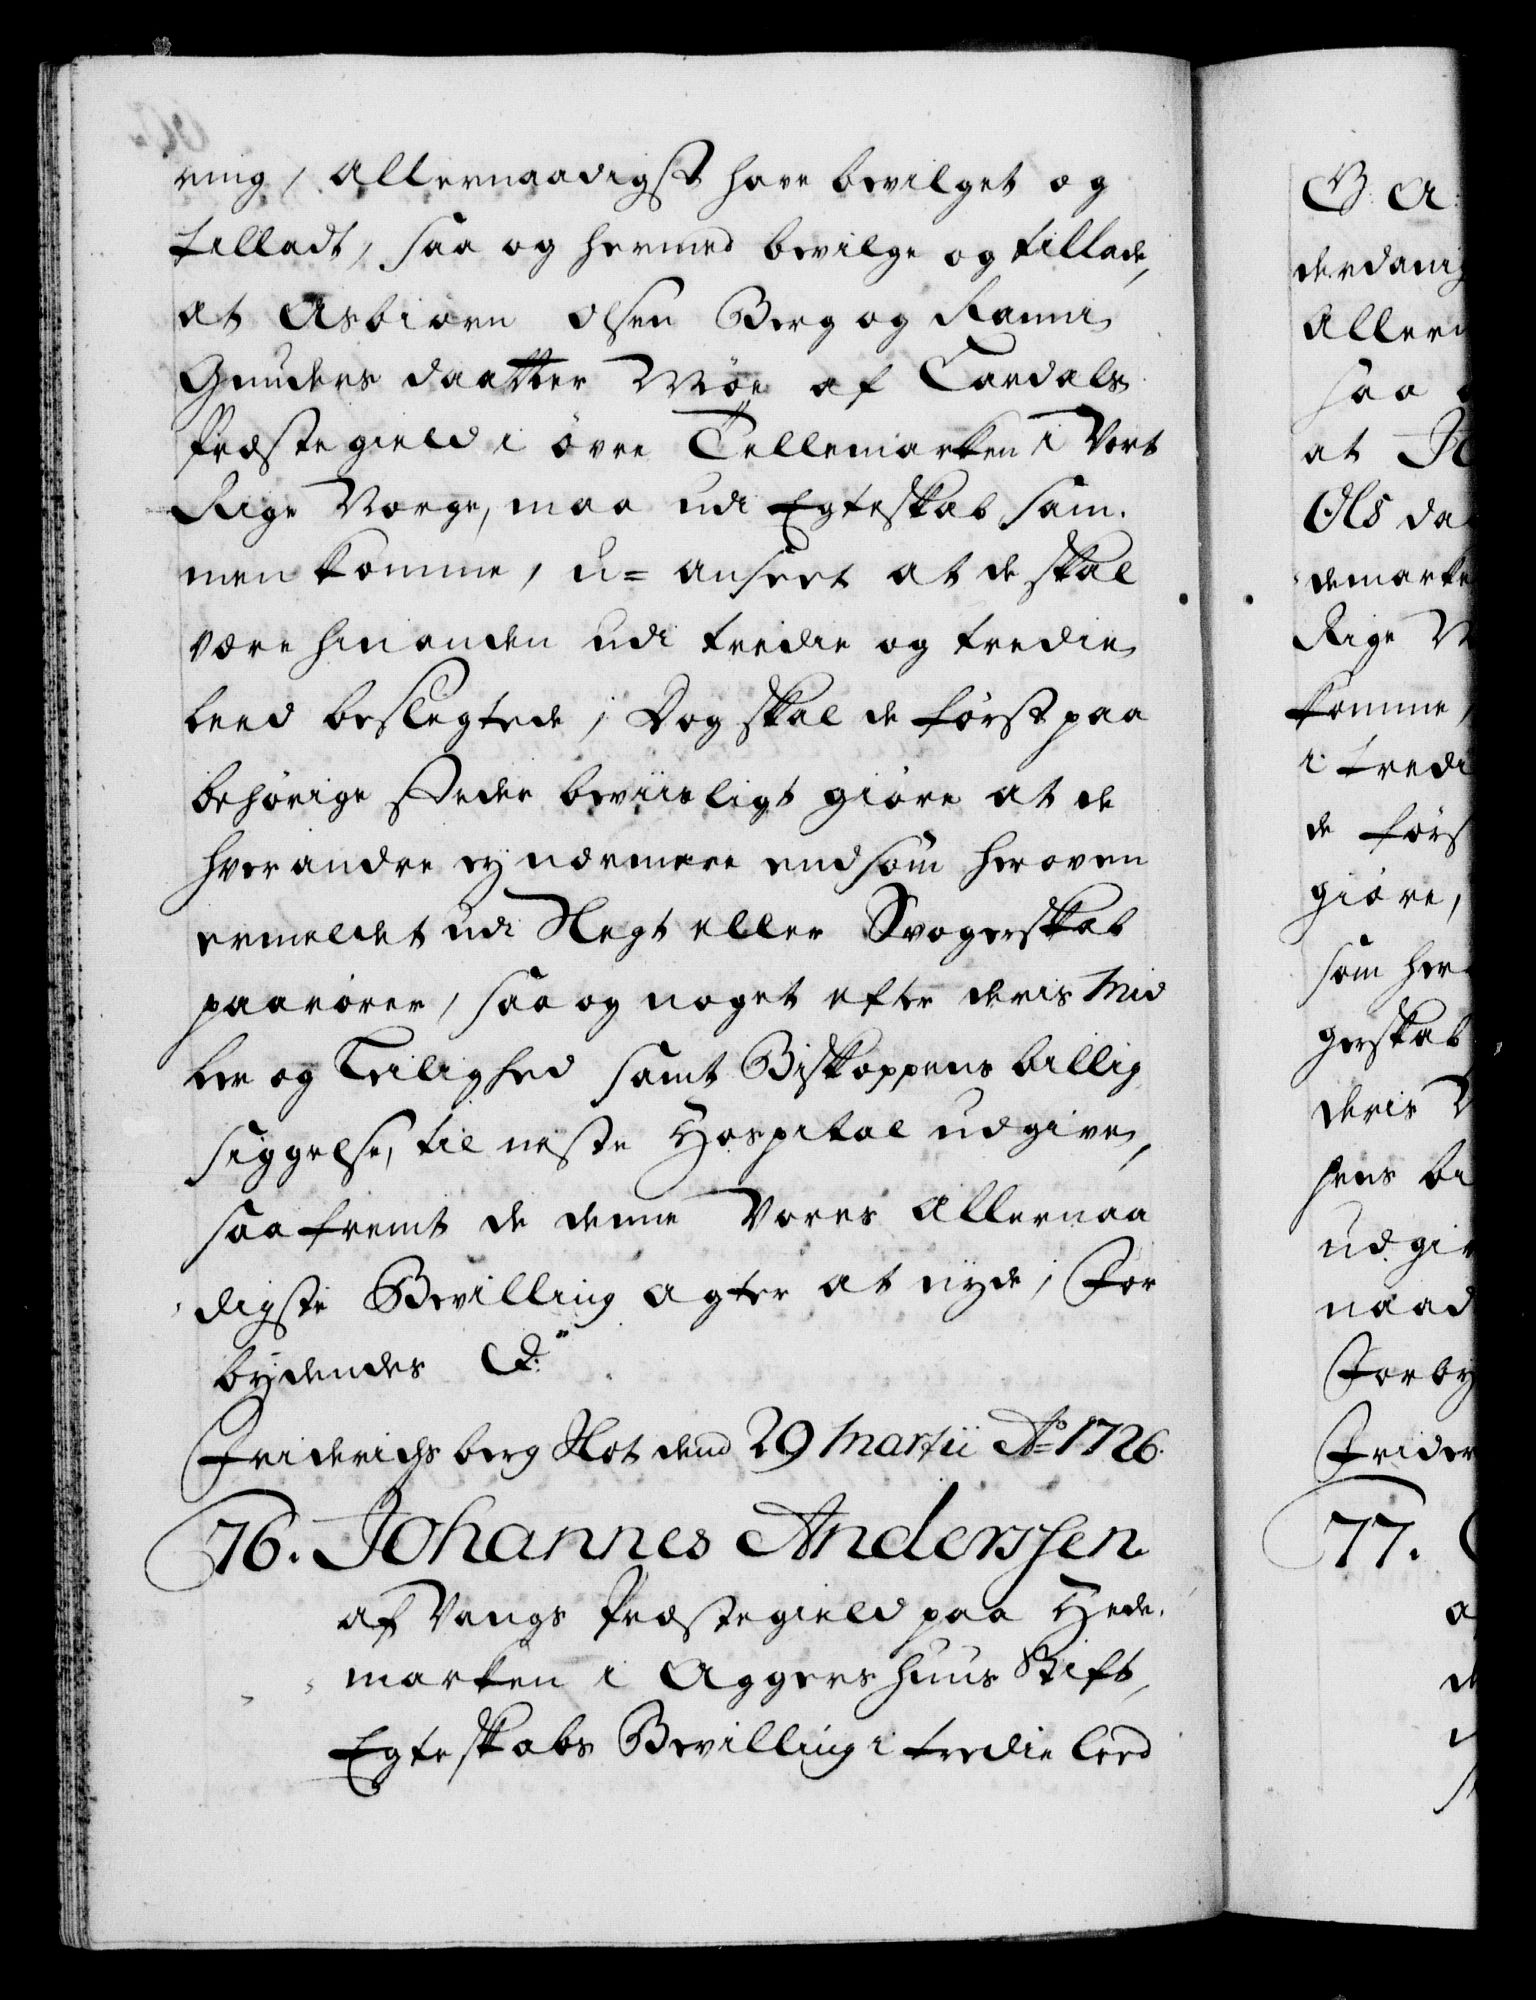 ning, Allernaadigst have bevilget og
tilladt, saa og hermed bevilge og tillade,
at Asbiørn Olsen Berg og Ranni
Gunders daatter Møe af Laurdals
Præstegield i øvre Tellemarken i Vort
Rige Norge, maa udi Egteskab sam-
men komme, u= anseet at de skal
være hinanden udi tredie og tredie
Leed beslegtede; Dog skal de først paa
behørige Steder beviisligt giøre at de
hver andre ey nærmere end som her oven
ermeldet udi Slegt eller Svogerskab
paarører, saa og noget efter deris Mid
ler og Leilighed samt Biskoppens billig
siggelse, til neste Hospital udgive,
saa fremt de denne Vores Allernaa
digste Bevilling agter at nyde; For
bydendes &.
Friderichsberg Slot dend 29 Martii Ao 1726.
76. Johannes Anderssen
af Vangs Præstegield paa Hede-
marken i Aggershuus Stift,
Egteskabs Bevilling i tredie Leed
G. A:
derdanig
Allern
saa
at
Ols da
demarke
Rige N
komme,
i tredi
de førs
giøre,
som her
gerskab
deris
pens bi
udgiv
naad
Forby
Frider
77.